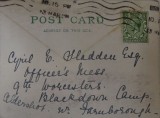 POST CARD
Cyril E. Sladden Esq.
Officer's Mess,
9th Worcesters.
Blackdown Camp,
Aldershot nr Farnborough.